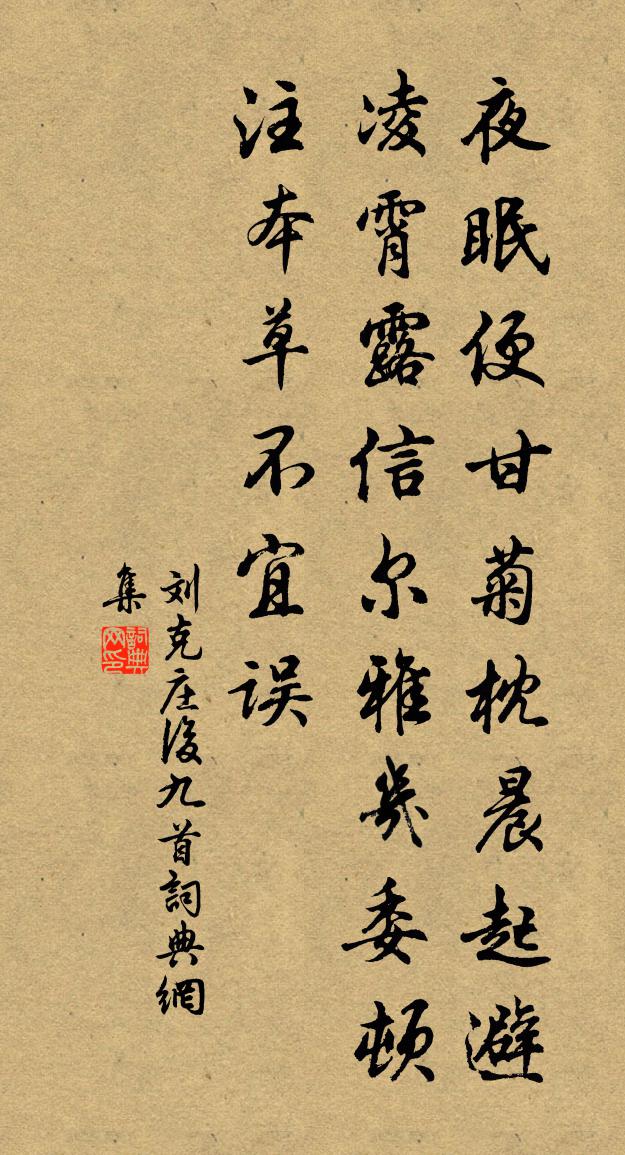 夜眠便甘菊枕晨起避
凌霄露信尔雅几委顿
注本草不宜误
刘克庄後九首詞典網
集
詞典网印